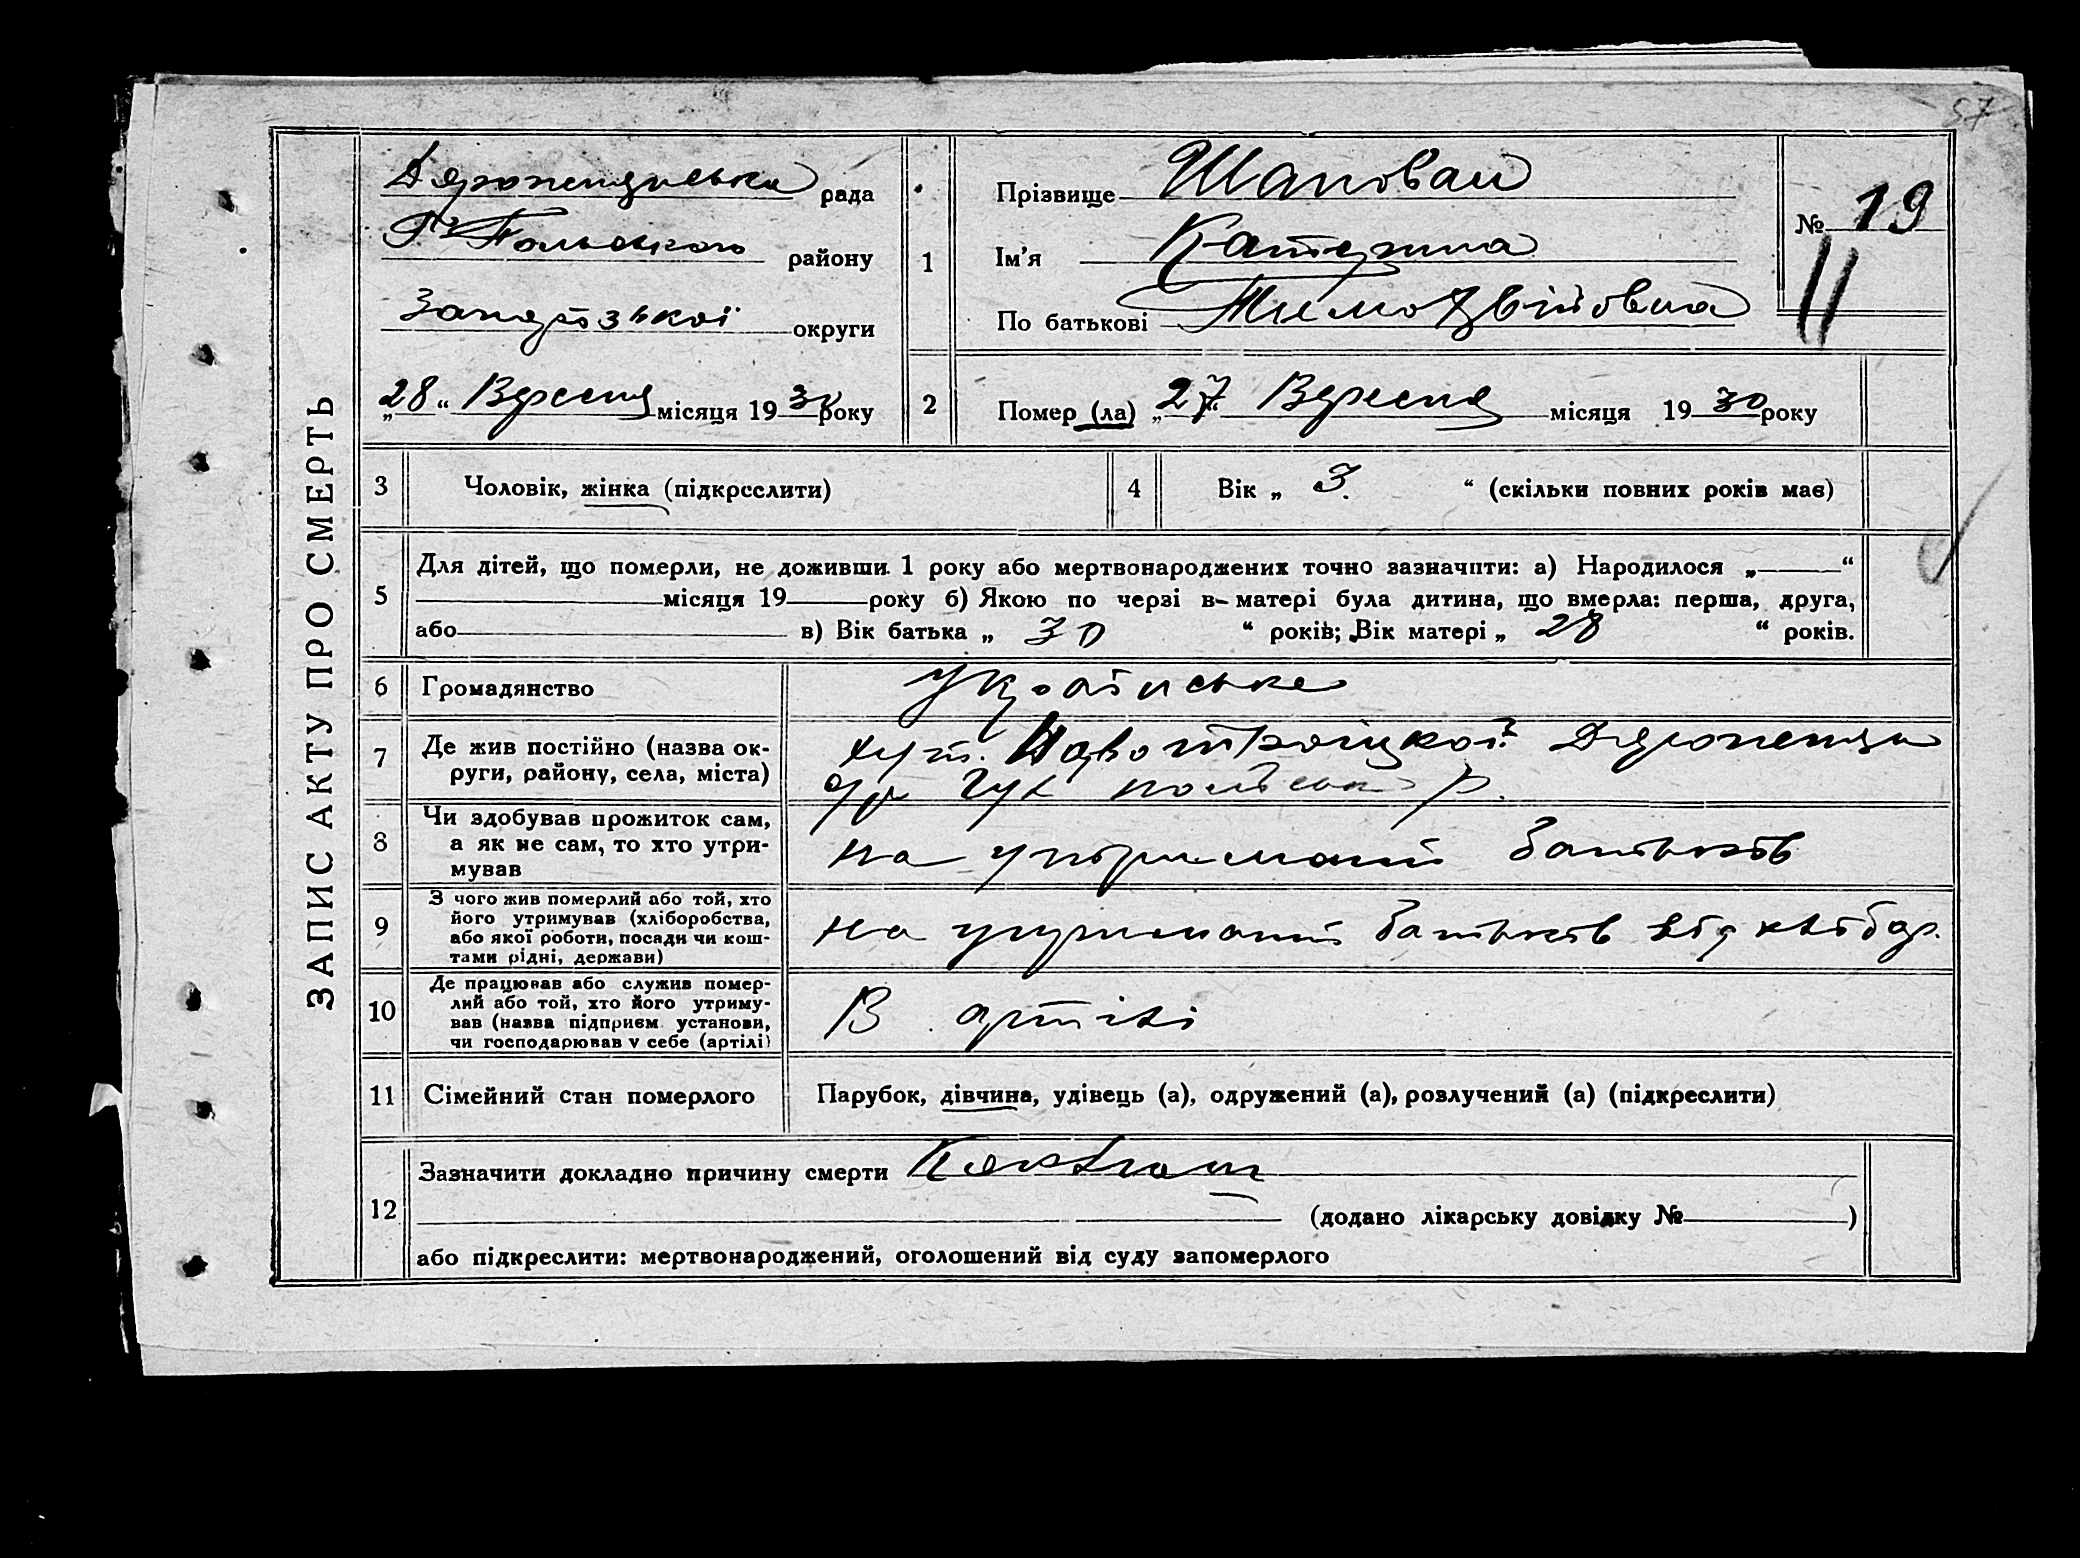 57
ЗАПИС АКТУ ПРО СМЕРТЬ
рада
району
Запорозької округи
„28“ Вересня місяця 1930 року
1
Прізвище Шаповал
Ім'я Катерина
По батькові
№ 19
11
2
Помер (ла) „27“ Вересня місяця 1930 року
3
Чоловік, жінка (підкреслити)
4
Вік „ 3. “ (скільки повних років має)
5
Для дітей, що померли, не доживши 1 року або мертвонароджених точно зазначити: а) Народилося „ “
місяця 19 року б) Якою по черзі в матері була дитина, що вмерла: перша, друга,
або в) Вік батька „ 30 “ років; Вік матері „ 28 “ років.
6
Громадянство
українське
7
Де жив постійно (назва ок-
руги, району, села, міста)
хут.
р.
8
Чи здобував прожиток сам,
а як не сам, то хто утри-
мував
на утриманні батьків
9
З чого жив померлий або той, хто
його утримував (хліборобства,
або якої роботи, посади чи кош-
тами рідні, держави)
на утриманні батьків від хлібор.
10
Де працював або служив помер-
лий або той, хто його утриму-
вав (назва підприєм. установи,
чи господарював у себе (артілі)
В артілі
11
Сімейний стан померлого
Парубок, дівчина, удівець (а), одружений (а), розлучений (а) (підкреслити)
12
Зазначити докладно причину смерти
(додано лікарську довідку № )
або підкреслити: мертвонароджений, оголошений від суду запомерлого